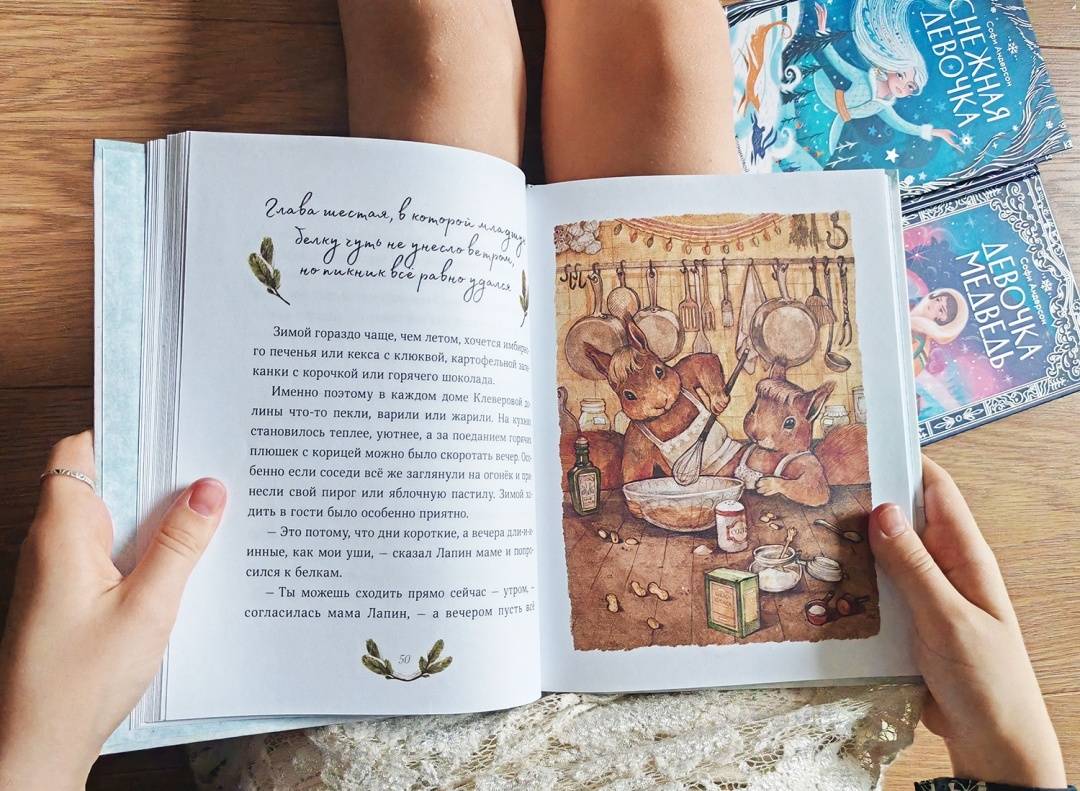 Глава шестая, в которой младшую
белку чуть не унесло ветром,
но пикник всё равно удался
Зимой гораздо чаще, чем летом, хочется имбирно-
го печенья или кекса с клюквой, картофельной запе-
канки с корочкой или горячего шоколада.
Именно поэтому в каждом доме Клеверовой до-
лины что-то пекли, варили или жарили. На кухне
становилось теплее, уютнее, а за поеданием горячих
плюшек с корицей можно было скоротать вечер. Осо-
бенно если соседи всё же заглянули на огонёк и при-
несли свой пирог или яблочную пастилу. Зимой хо-
дить в гости было особенно приятно.
— Это потому, что дни короткие, а вечера дли-и-и-
инные, как мои уши, — сказал Лапин маме и попро-
сился к белкам.
— Ты можешь сходить прямо сейчас — утром, —
согласилась мама Лапин, — а вечером пусть всё
50
СОДА
Софи Андерсон
СНЕЖНАЯ
ДЕВОЧКА
Софи Андерсон
ДЕВОЧКА
МЕДВЕДЬ